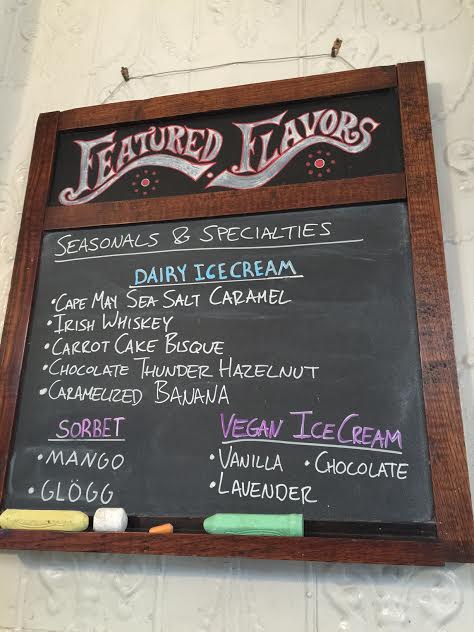 FEATURED FLAVORS
SEASONALS & SPECIALTIES
DAIRY ICE CREAM
• CAPE MAY SEA SALT CARAMEL
• IRISH WHISKEY
• CARROT CAKE BISQUE
• CHOCOLATE THUNDER HAZELNUT
• CARAMELIZED BANANA
SORBET
• MANGO
• GLÖGG
VEGAN ICE CREAM
• VANILLA • CHOCOLATE
• LAVENDER